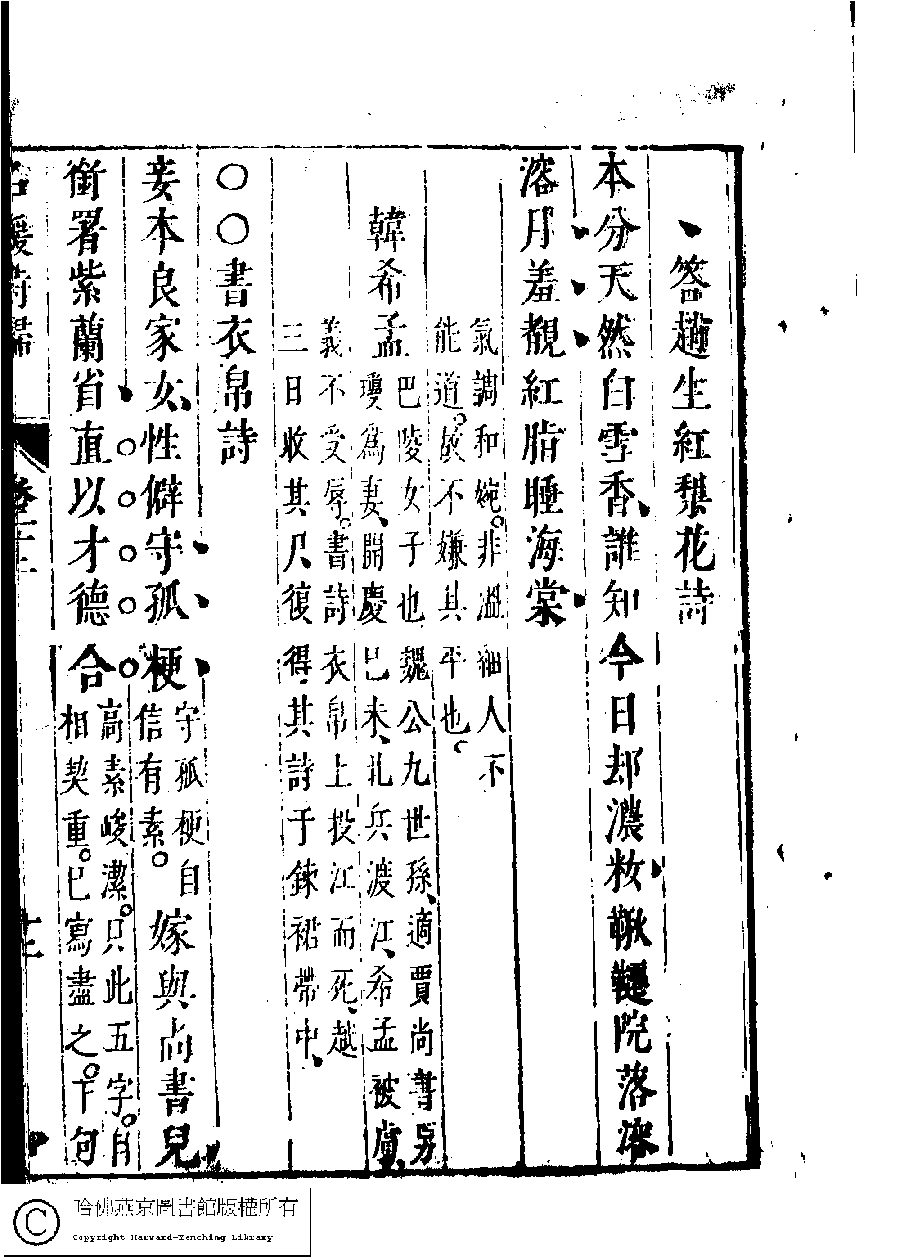 答趙生紅梨花詩
本分天然白雪香誰知今日却濃粧鞦韆院落溶
溶月羞覩紅脂睡海棠
氣調和婉。非溫細人不
能道。故不嫌其平也。
韓希孟
巴陵女子也魏公九世孫、適賈尚書男
瓊爲妻、開慶己未、北兵渡江、希孟被虜、
義不受辱。書詩衣帛上投江而死、越
三日收其尸復得其詩于鍊裙帶中、
○○書衣帛詩
妾本良家女性僻守孤梗
守孤梗自
信有素。
嫁與尚書兒
銜署紫蘭省直以才德合
高素峻潔。只此五字。自
相契重。已寫盡之。下句
名媛詩歸
卷二十二
十二
哈佛燕京圖書館版權所有
Copyright Harvard-Yenching Library